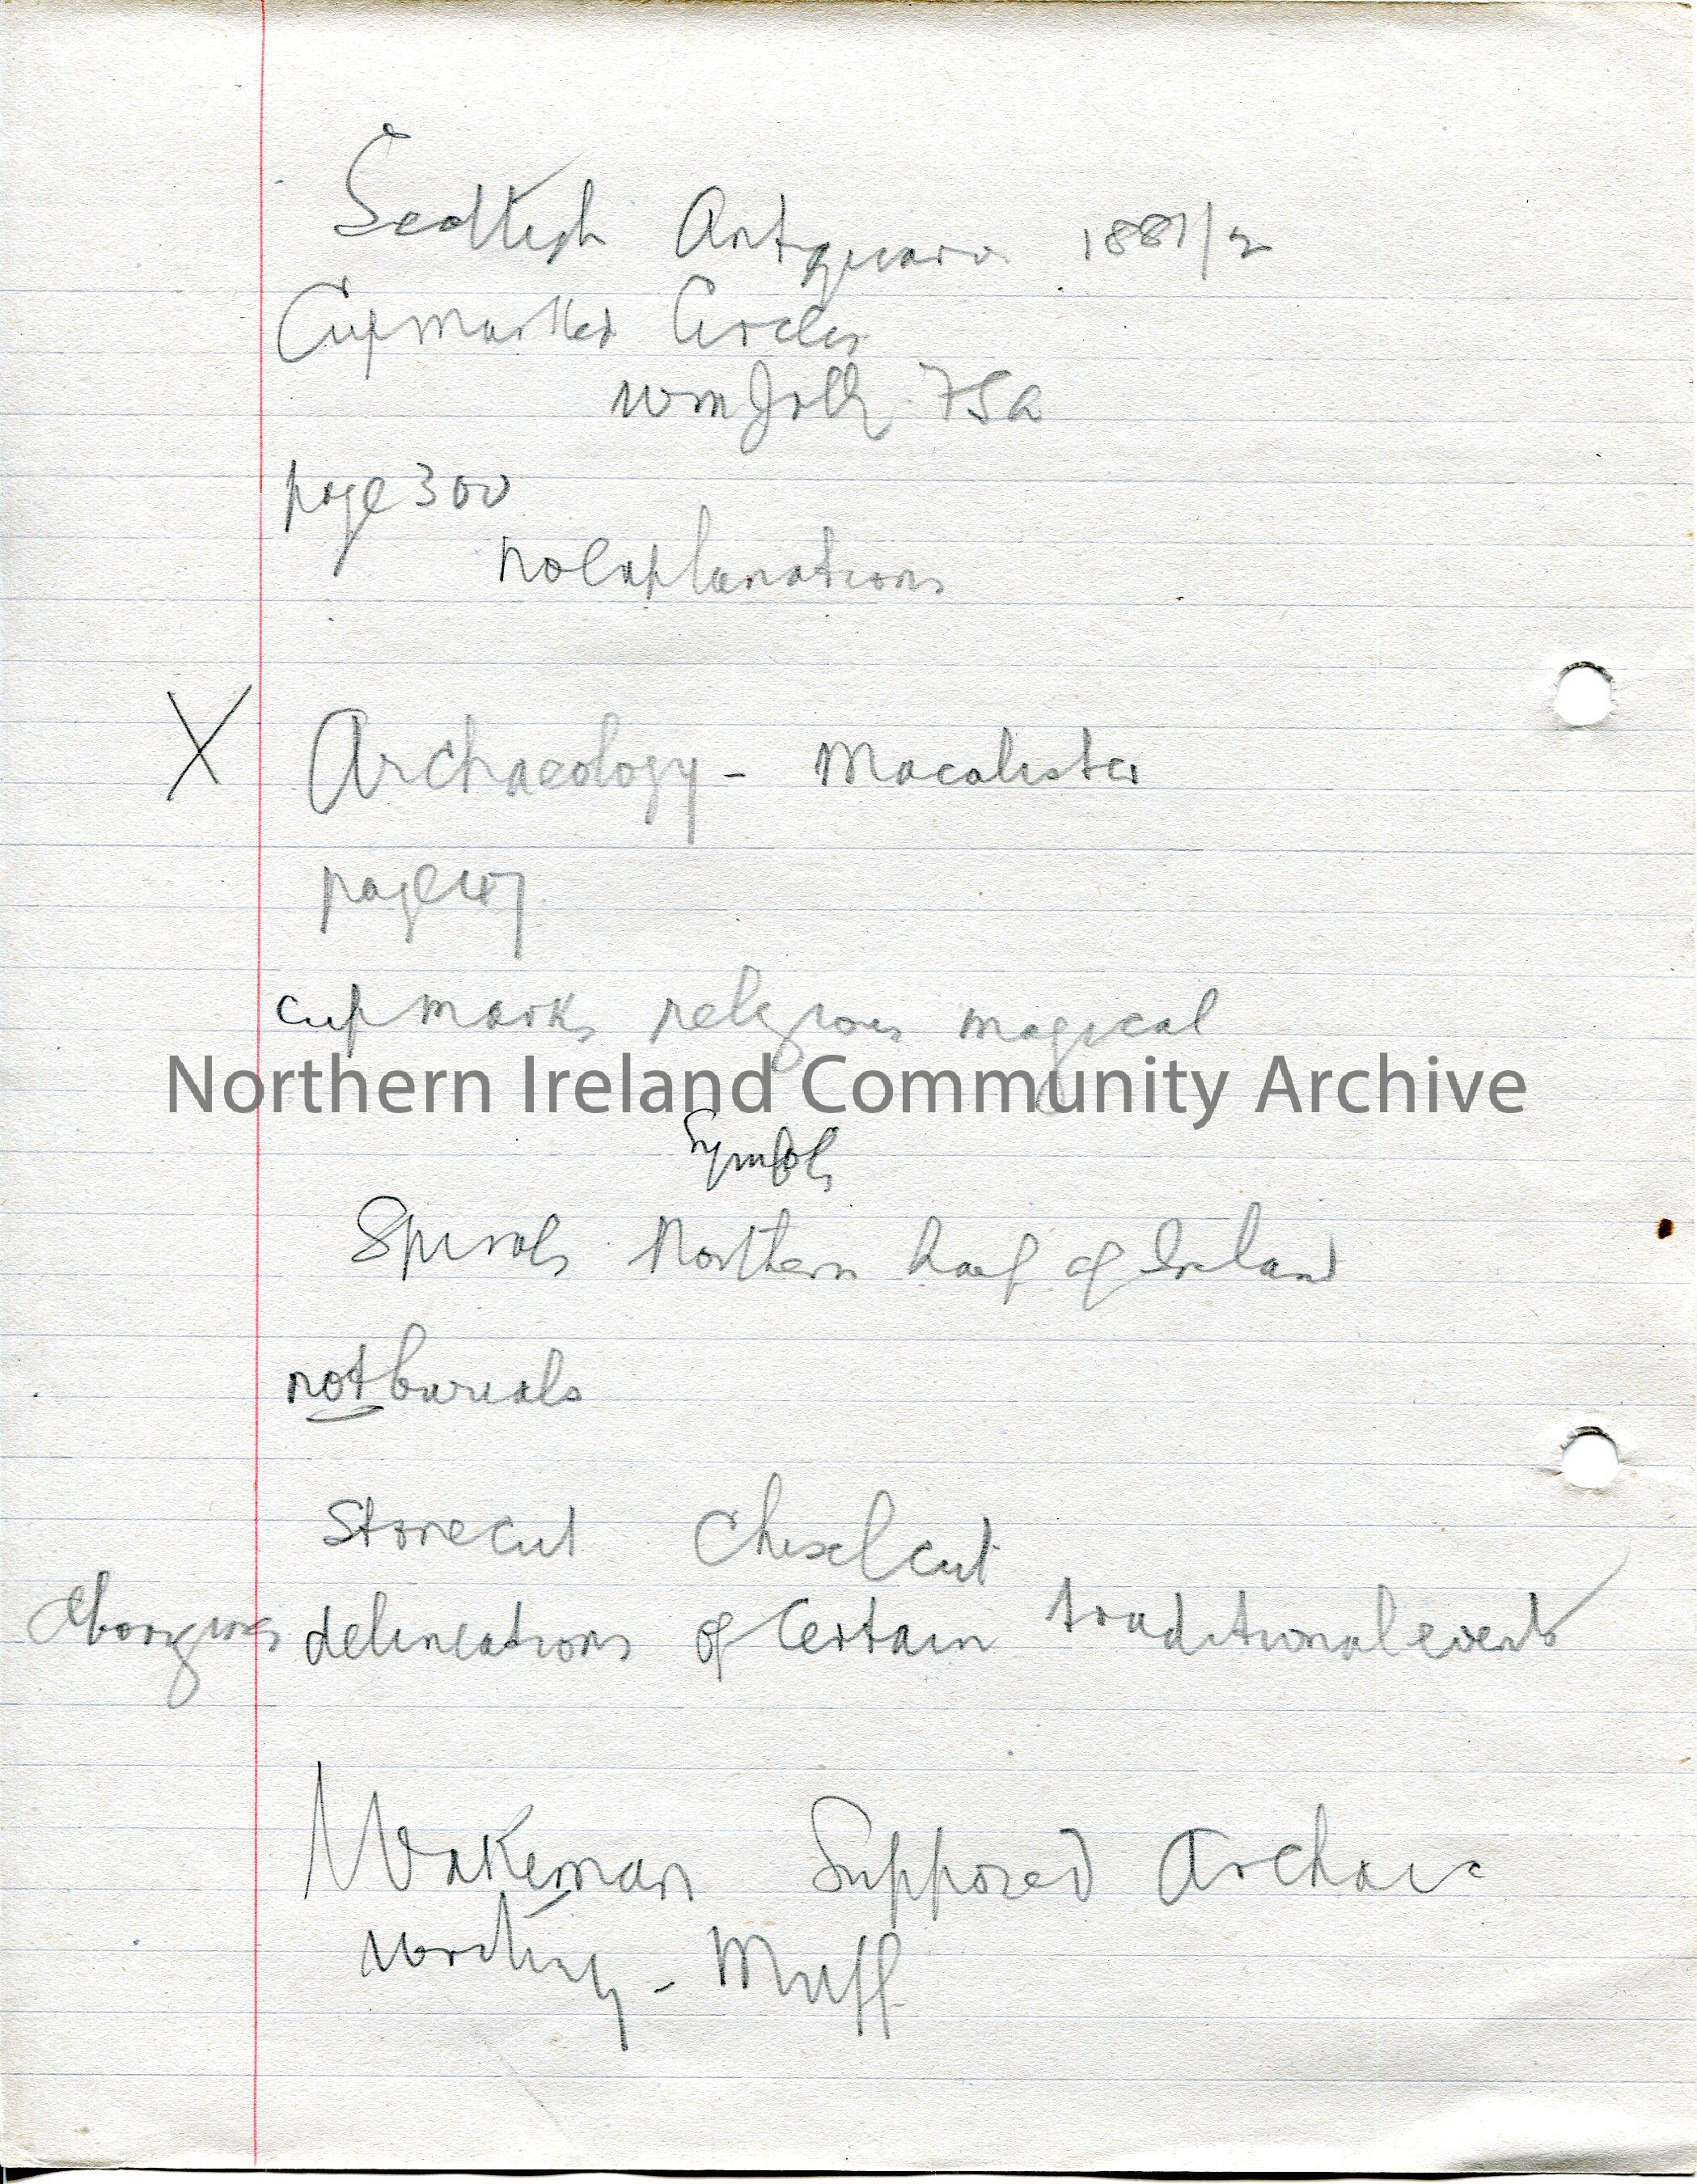 Scottish Antiquara 1881/2
Cupmarked Circles
Wm Jolly FSA
page 300
no explanations
X Archaeology - Macalister
page 47
cup marks religious magical
Northern Ireland Community Archive
Symbols
Spirals Northern half of Ireland
not burials
Stonecut Chiselcut
Aborigines delineations of Certain traditional events
Wakeman Supposed Archaic
Writing - Muff